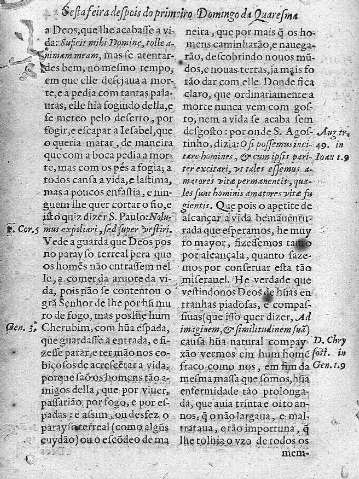 Sesta feira despois do primeiro Domingo da Quaresma
a Deos, que lhe acabasse a vi-
da: Suficit mihi Domine, tolle a-
nimam meam, mas se atentar-
des bem, no mesmo tempo,
em que elle desejaua a mor-
te, e a pedia com tantas pala-
uras, elle hia fogindo della, e
se meteo pelo deserto, por
fogir, e escapar a Iesabel, que
o queria matar, de maneira
que com a boca pedia a mor-
te, mas com os pés a fogia; a
todos cansa a vida, e lastima,
mas a poucos enfastia, e nin-
guem lhe quer cortar o fio, e
isto quiz dizer S. Paulo: Nolu-
mus expoliari, sed super vestiri.
Vede a guarda que Deos pos
no parayso terreal pera que
os homẽs não entrassem nel-
le, e a comer da aruore da vi-
da, pois não se contentou o
grã Senhor de lhe por hũ mu-
ro de fogo, mas poslhe hum
Cherubim, com hũa espada,
que guardasse a entrada, e fi-
zesse parar, e ter mão nos co-
biçosos de acrescẽtar a vida,
porque saõ os homens tão a-
migos della, que por viuer,
passarião por fogo, e por es-
padas: e assim, ou desfez o
parayso terreal (como algũs
cuydão) ou o escõdeo de ma
2. Cor. 5
Gen. 3.
neira, que por mais q̃ os ho-
mens caminharão, e nauega-
rão, descobrindo nouos mũ-
dos, e nouas terras, ja mais fo
rão dar com elle. Donde fica
claro, que ordinariamente a
morte nunca vem com gos-
to, nem a vida se acaba sem
desgosto: por onde S. Agos-
tinho, dizia: O si possemus inci-
tare homines, & cum ipsis pari-
ter excitari, vt tales essemus a-
matores vitæ permanentis, qua-
les sunt homines amatores vitæ fu
gientis. Que pois o apetite de
alcançar a vida bemauentu-
rada que esperamos, he muy
to mayor, fizessemos tanto
por alcançala, quanto faze-
mos por conseruar esta tão
miserauel. He verdade que
vestindonos Deos de hũas en-
tranhas piadosas, e compas-
siuas (que isso quer dizer, Ad
imaginem, & similitudinem suã)
causa hũa natural compay-
xão vermos em hum homẽ
fraco como nos, em fim da
mesma massa que somos, hũa
enfermidade tão prolonga-
da, que auia trinta e oito an-
nos, q̃ o não largaua, e mal-
trataua, e tão importuna, q̃
lhe tolhia o vzo de todos os
mem-
Aug. tr.
49. in
Ioan. 1.9
D. Chry
sost. in
Gen. 1.9